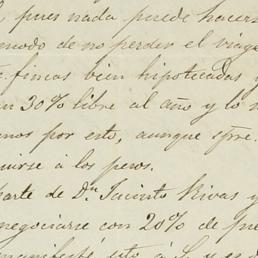 pues nada puede hacers
modo de no perder el viage
fincas bien hipotecadas y
un 30% libre al año y lo
nos por esto, aunque spre.
uirse á los pesos.
parte de Dn. Jacinto Rivas y
negociarse con 20% de pre
manifesté esto á